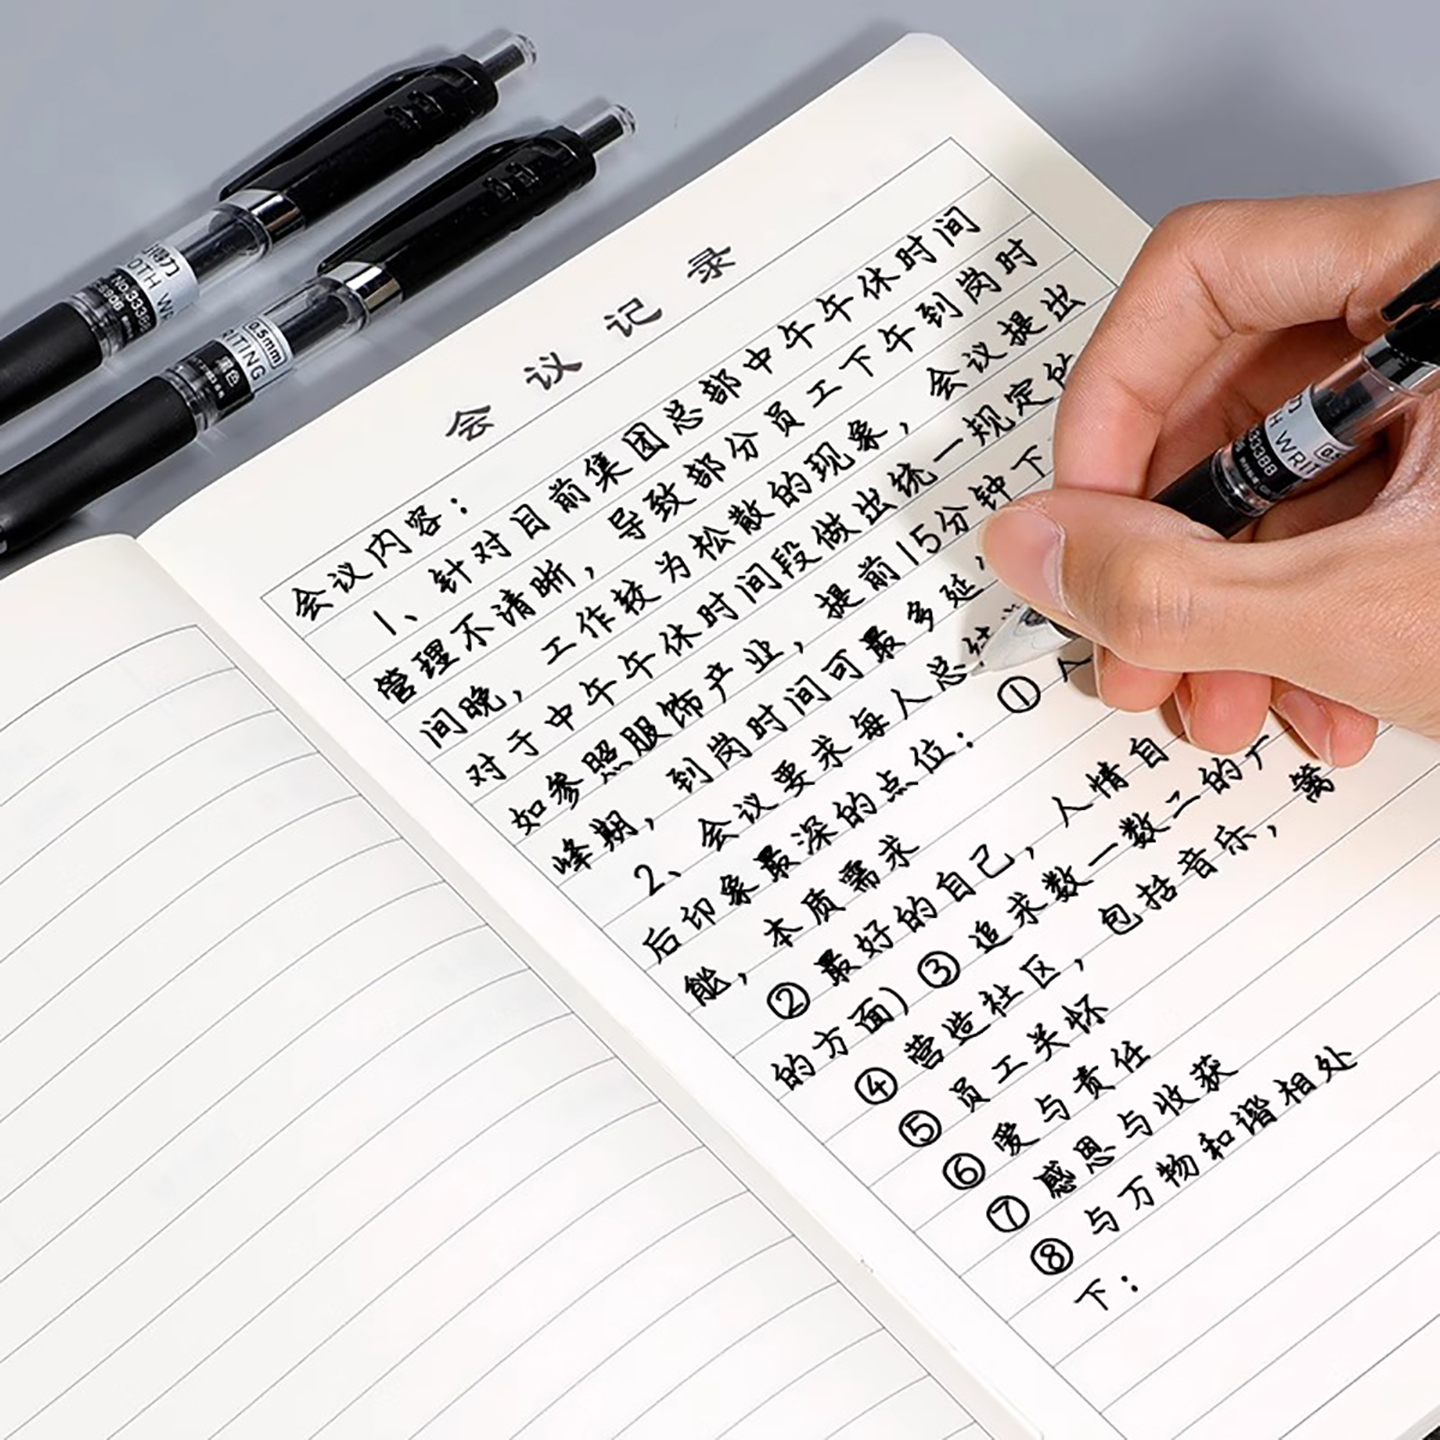 会议记录
会议内容：
1、针对目前集团总部中午午休时间
管理不清晰，导致部分员工下午到岗时
间晚，工作较为松散的现象，会议提出
对于中午午休时间段做出统一规定的
如参照服饰产业，提前15分钟下
峰期，到岗时间可最多延，
2、会议要求每人总结
后印象最深的点位：① 人
能，本质需求
② 最好的自己，人情自
的方面）③ 追求数一数二的广
④ 营造社区，包括音乐，篱
⑤ 员工关怀
⑥ 爱与责任
⑦ 感恩与收获
⑧ 与万物和谐相处
下：
OTH WR
NO.3388
0.5mm
RITING
黑色
H WRIT
3388